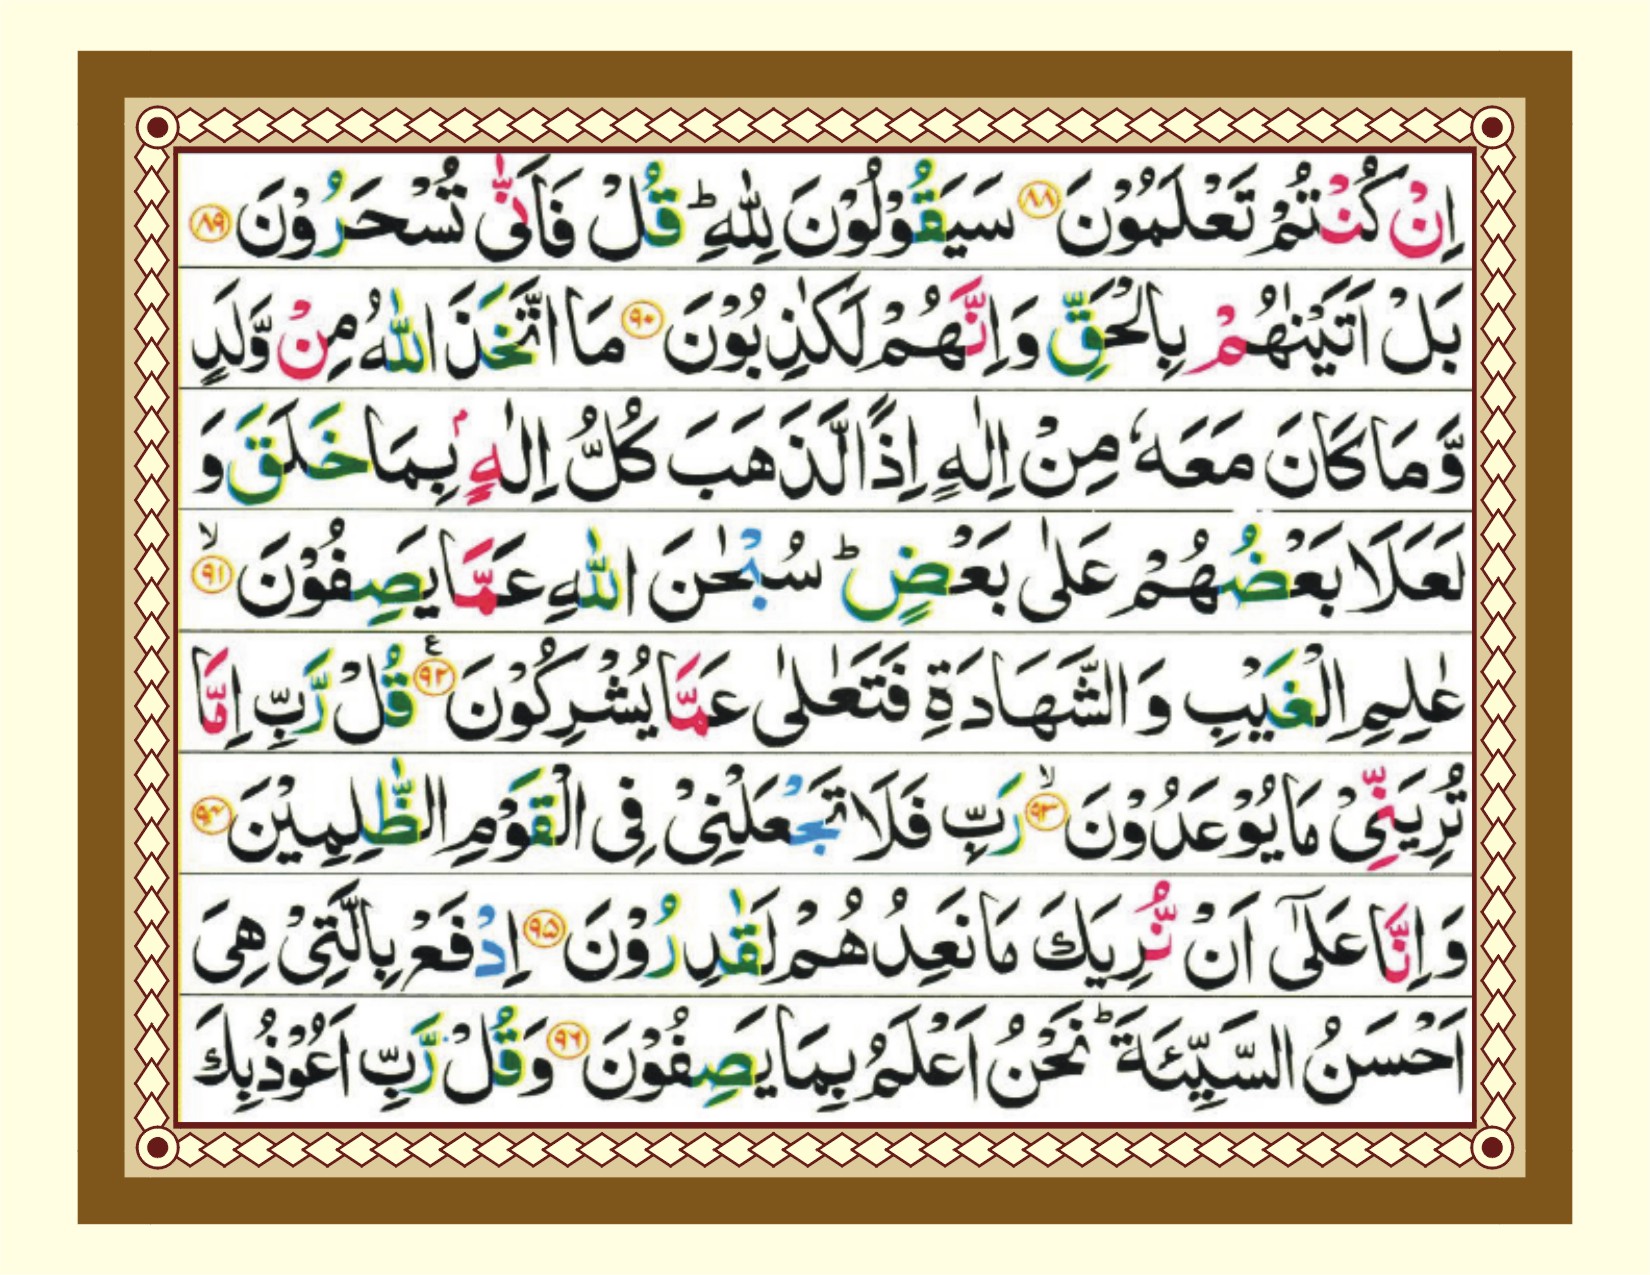 اِنْ كُنْتُمْ تَعْلَمُوْنَ ﴿۸۸﴾ سَيَقُوْلُوْنَ لِلّٰهِ ؕ قُلْ فَاَنّٰى تُسْحَرُوْنَ ﴿۸۹﴾
بَلْ اَتَيْنٰهُمْ بِالْحَقِّ وَاِنَّهُمْ لَكٰذِبُوْنَ ﴿۹۰﴾ مَا اتَّخَذَ اللّٰهُ مِنْ وَّلَدٍ
وَّمَا كَانَ مَعَهٗ مِنْ اِلٰهٍ اِذًا لَّذَهَبَ كُلُّ اِلٰهٍۭ بِمَا خَلَقَ وَ
لَعَلَا بَعْضُهُمْ عَلٰى بَعْضٍ ؕ سُبْحٰنَ اللّٰهِ عَمَّا يَصِفُوْنَ ۙ﴿۹۱﴾
عٰلِمِ الْغَيْبِ وَ الشَّهَادَةِ فَتَعٰلٰى عَمَّا يُشْرِكُوْنَ ﴿۹۲﴾ ع قُلْ رَّبِّ اِمَّا
تُرِيَنِّيْ مَا يُوْعَدُوْنَ ۙ﴿۹۳﴾ رَبِّ فَلَا تَجْعَلْنِيْ فِى الْقَوْمِ الظّٰلِمِيْنَ ﴿۹۴﴾
وَ اِنَّا عَلٰٓى اَنْ نُّرِيَكَ مَا نَعِدُهُمْ لَقٰدِرُوْنَ ﴿۹۵﴾ اِدْفَعْ بِالَّتِيْ هِىَ
اَحْسَنُ السَّيِّئَةَ ؕ نَحْنُ اَعْلَمُ بِمَا يَصِفُوْنَ ﴿۹۶﴾ وَقُلْ رَّبِّ اَعُوْذُ بِكَ